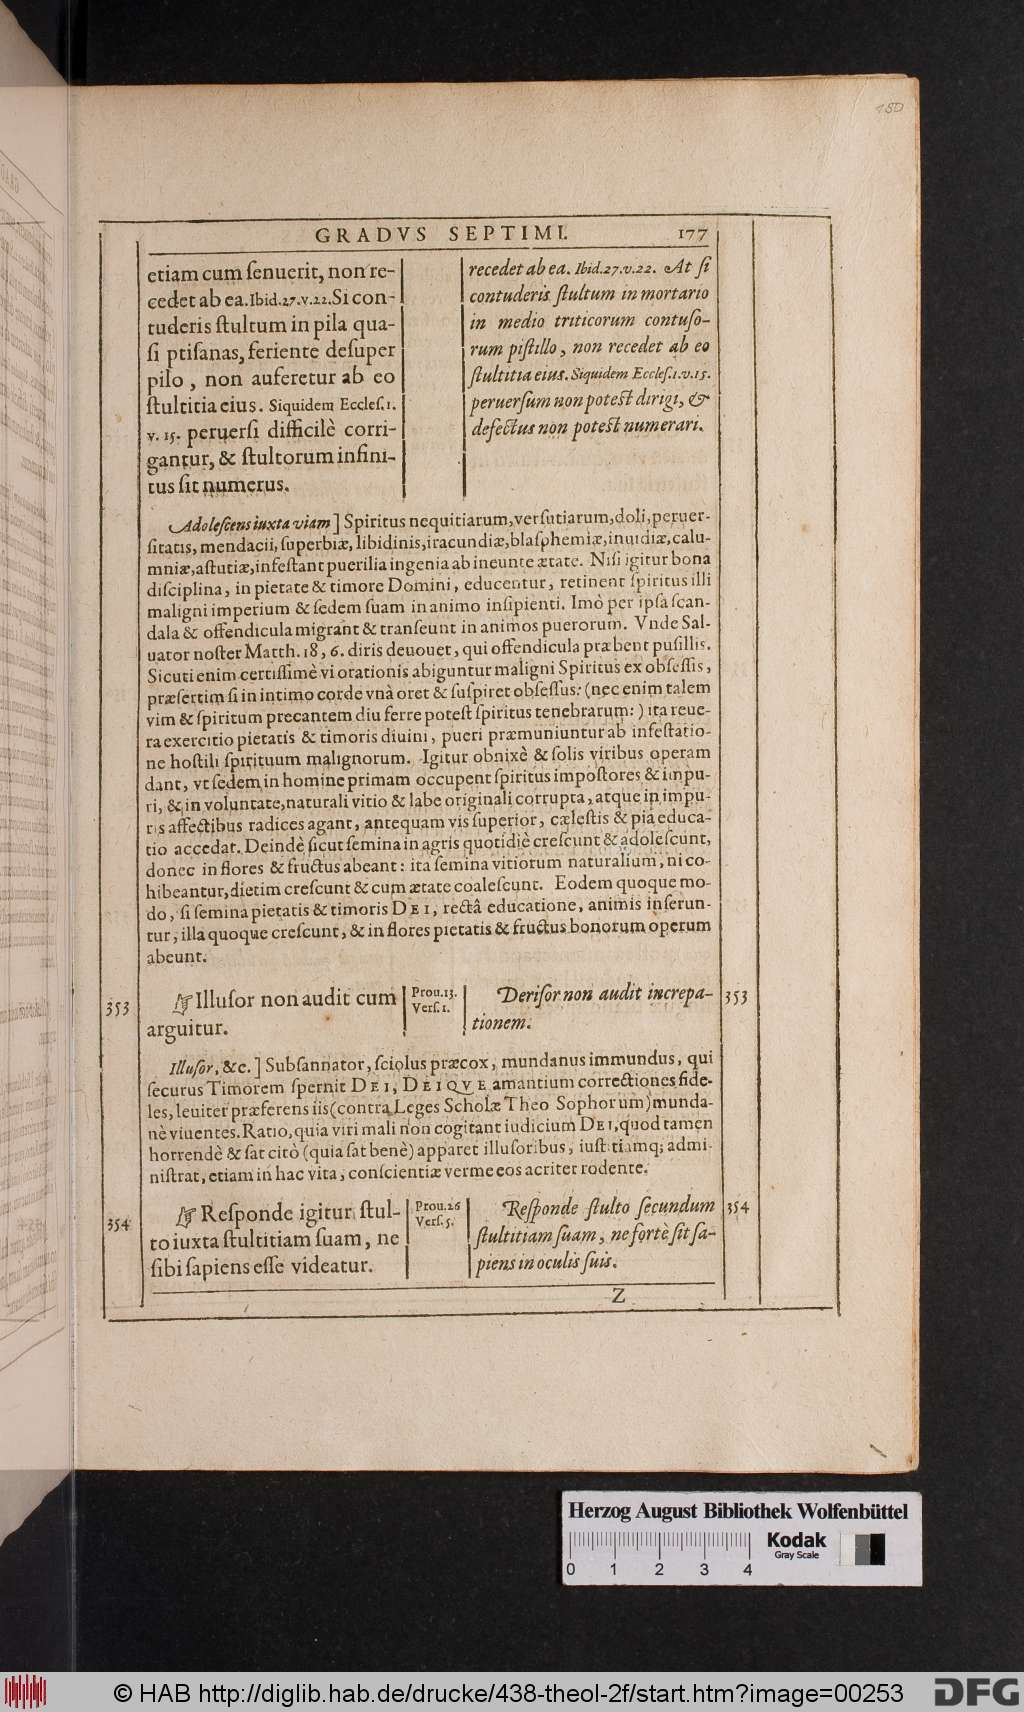 150
GRADVS SEPTIMI. 177
etiam cum ſenuerit, non re-
cedet ab ea. Ibid. 27. v. 22. Si con-
tuderis ſtultum in pila qua-
ſi ptiſanas, feriente deſuper
pilo, non auferetur ab eo
ſtultitia eius. Siquidem Eccleſ. 1.
v. 15. peruerſi difficilè corri-
gantur, & ſtultorum infini-
tus ſit numerus.
recedet ab ea. Ibid. 27. v. 22. At ſi
contuderis ſtultum in mortario
in medio triticorum contuſo-
rum piſtillo, non recedet ab eo
ſtultitia eius. Siquidem Eccleſ. 1. v. 15.
peruerſum non poteſt dirigi, &
defectus non poteſt numerari.
Adoleſcens iuxta viam ] Spiritus nequitiarum, verſutiarum, doli, peruer-
ſitatis, mendacii, ſuperbiæ, libidinis, iracundiæ, blaſphemiæ, inuidiæ, calu-
mniæ, aſtutiæ, infeſtant puerilia ingenia ab ineunte ætate. Niſi igitur bona
diſciplina, in pietate & timore Domini, educentur, retinent ſpiritus illi
maligni imperium & ſedem ſuam in animo inſipienti. Imò per ipſa ſcan-
dala & offendicula migrant & tranſeunt in animos puerorum. Vnde Sal-
uator noſter Matth. 18, 6. diris deuouet, qui offendicula præbent puſillis.
Sicuti enim certiſſimè vi orationis abiguntur maligni Spiritus ex obſeſſis,
præſertim ſi in intimo corde vnà oret & ſuſpiret obſeſſus: (nec enim talem
vim & ſpiritum precantem diu ferre poteſt ſpiritus tenebrarum: ) ita reue-
ra exercitio pietatis & timoris diuini, pueri præmuniuntur ab infeſtatio-
ne hoſtili ſpirituum malignorum. Igitur obnixè & ſolis viribus operam
dant, vt ſedem in homine primam occupent ſpiritus impoſtores & impu-
ri, & in voluntate, naturali vitio & labe originali corrupta, atque in impu-
ris affectibus radices agant, antequam vis ſuperior, cæleſtis & pia educa-
tio accedat. Deindè ſicut ſemina in agris quotidiè creſcunt & adoleſcunt,
donec in flores & fructus abeant: ita ſemina vitiorum naturalium, ni co-
hibeantur, dietim creſcunt & cum ætate coaleſcunt. Eodem quoque mo-
do, ſi ſemina pietatis & timoris DEI, rectâ educatione, animis inſerun-
tur, illa quoque creſcunt, & in flores pietatis & fructus bonorum operum
abeunt.
353 ☞ Illuſor non audit cum
arguitur.
Prou. 13.
Verſ. 1.
Deriſor non audit increpa- 353
tionem.
Illuſor, &c. ] Subſannator, ſciolus præcox, mundanus immundus, qui
ſecurus Timorem ſpernit DEI, DEIQVE amantium correctiones fide-
les, leuiter præferens iis (contra Leges Scholæ Theo Sophorum) munda-
nè viuentes. Ratio, quia viri mali non cogitant iudicium DEI, quod tamen
horrendè & ſat citò (quia ſat benè) apparet illuſoribus, iuſtitiamq; admi-
niſtrat, etiam in hac vita, conſcientiæ verme eos acriter rodente.
354 ☞ Reſponde igitur ſtul-
to iuxta ſtultitiam ſuam, ne
ſibi ſapiens eſſe videatur.
Prou. 26
Verſ. 5.
Reſponde ſtulto ſecundum 354
ſtultitiam ſuam, ne fortè ſit ſa-
piens in oculis ſuis.
Z
Herzog August Bibliothek Wolfenbüttel
Kodak
Gray Scale
0 1 2 3 4
© HAB http://diglib.hab.de/drucke/438-theol-2f/start.htm?image=00253
DFG